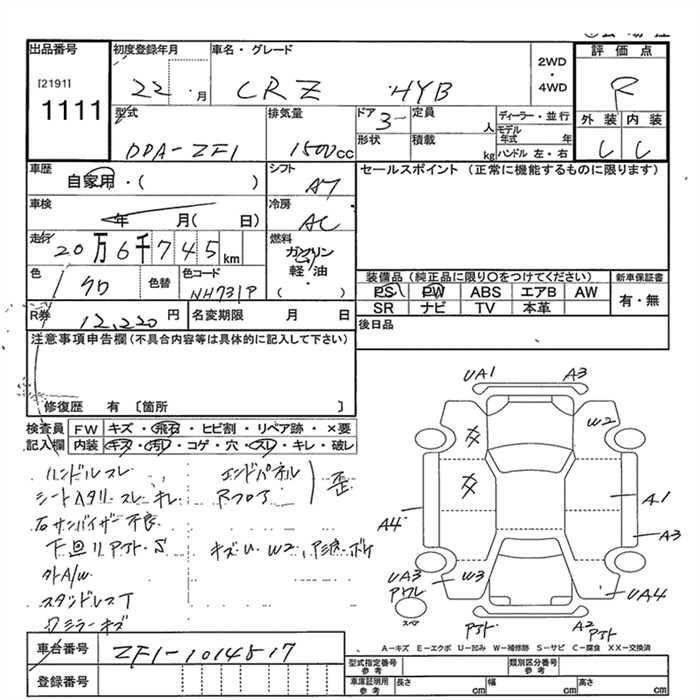 出品番号
[2191]
1111
初度登録年月
22 ・ 月
車名・グレード
CRZ HYB
2WD
・
4WD
評価点
R
外装 内装
型式
DDA-ZF1
排気量
1500cc
ドア 3
形状
定員 人
積載 kg
ディーラー・並行
モデル年式 年
ハンドル 左・右
車歴
自家用・( )
シフト
AT
セールスポイント (正常に機能するものに限ります)
車検
年 月( 日)
冷房
AC
走行
20万6千745km
燃料
ガソリン
軽・油
( )
色
クロ
色替
色コード
NH731P
装備品(純正品に限り○をつけてください)
PS PW ABS エアB AW
SR ナビ TV 本革
新車保証書
有・無
R券
12,220円
名変期限 月 日
後日品
注意事項申告欄(不具合内容等は具体的に記入して下さい)
修復歴 有 〔箇所 〕
検査員
記入欄
FW キズ・飛石・ヒビ割・リペア跡・×要
内装 キズ・汚レ・コゲ・穴・スレ・キレ・破レ
ハンドルスレ
シートヘタリ スレ キレ
右サンバイザー不良
下回リサビ・S
外A/W
スタッドレスT
ワミラーキズ
エンドパネル
Rフロア
歪
キズ・U W2,
UA1
A3
W2
A1
A3
A4
UA3
W3
UA4
A2
スペア
A−キズ E−エクボ U−凹み W−補修跡 S−サビ C−腐食 XX−交換済
車台番号
ZF1-1014817
登録番号
型式指定番号
参考
類別区分番号
参考
車庫証明用
参考
長さ cm
幅 cm
高さ cm